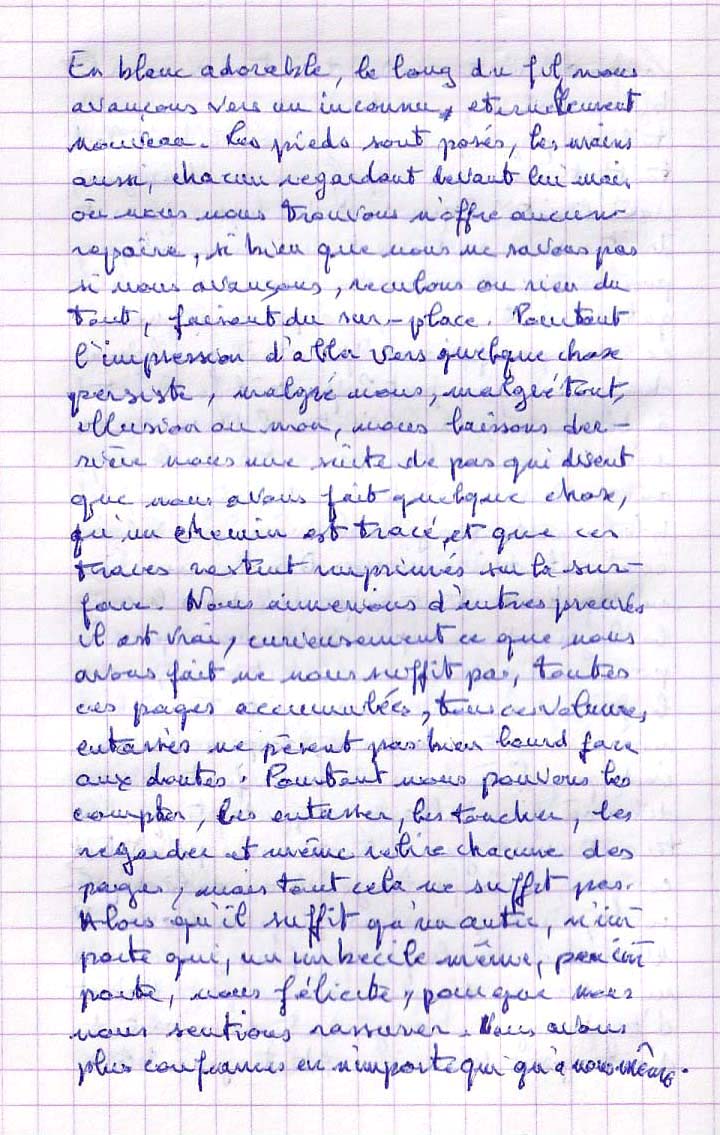 En bleu adorable, le long du fil, nous
avançons vers un inconnu, éternellement
nouveau. Les pieds sont posés, les mains
aussi, chacun regardant devant lui mais
où nous nous trouvons n'offre aucun
repaire, si bien que nous ne savons pas
si nous avançons, reculons ou rien du
tout, faisant du sur-place. Pourtant
l'impression d'aller vers quelque chose
persiste, malgré nous, malgré tout,
illusion ou non, nous laissons der-
rière nous une suite de pas qui disent
que nous avons fait quelque chose,
qu'un chemin est tracé, et que ces
traces restent imprimées sur la sur-
face. Nous aimerions d'autres preuves
il est vrai, curieusement ce que nous
avons fait ne nous suffit pas, toutes
ces pages accumulées, tous ces volumes,
entassés ne pèsent pas bien lourd face
aux doutes. Pourtant nous pouvons les
compter, les entasser, les toucher, les
regarder et même relire chacune des
pages, mais tout cela ne suffit pas.
Alors qu'il suffit qu'un autre, n'im
porte qui, un imbécile même, peu im
porte, nous félicite, pour que nous
nous sentions rassurer. Nous avons
plus confiance en n'importe qui qu'à nous-même.